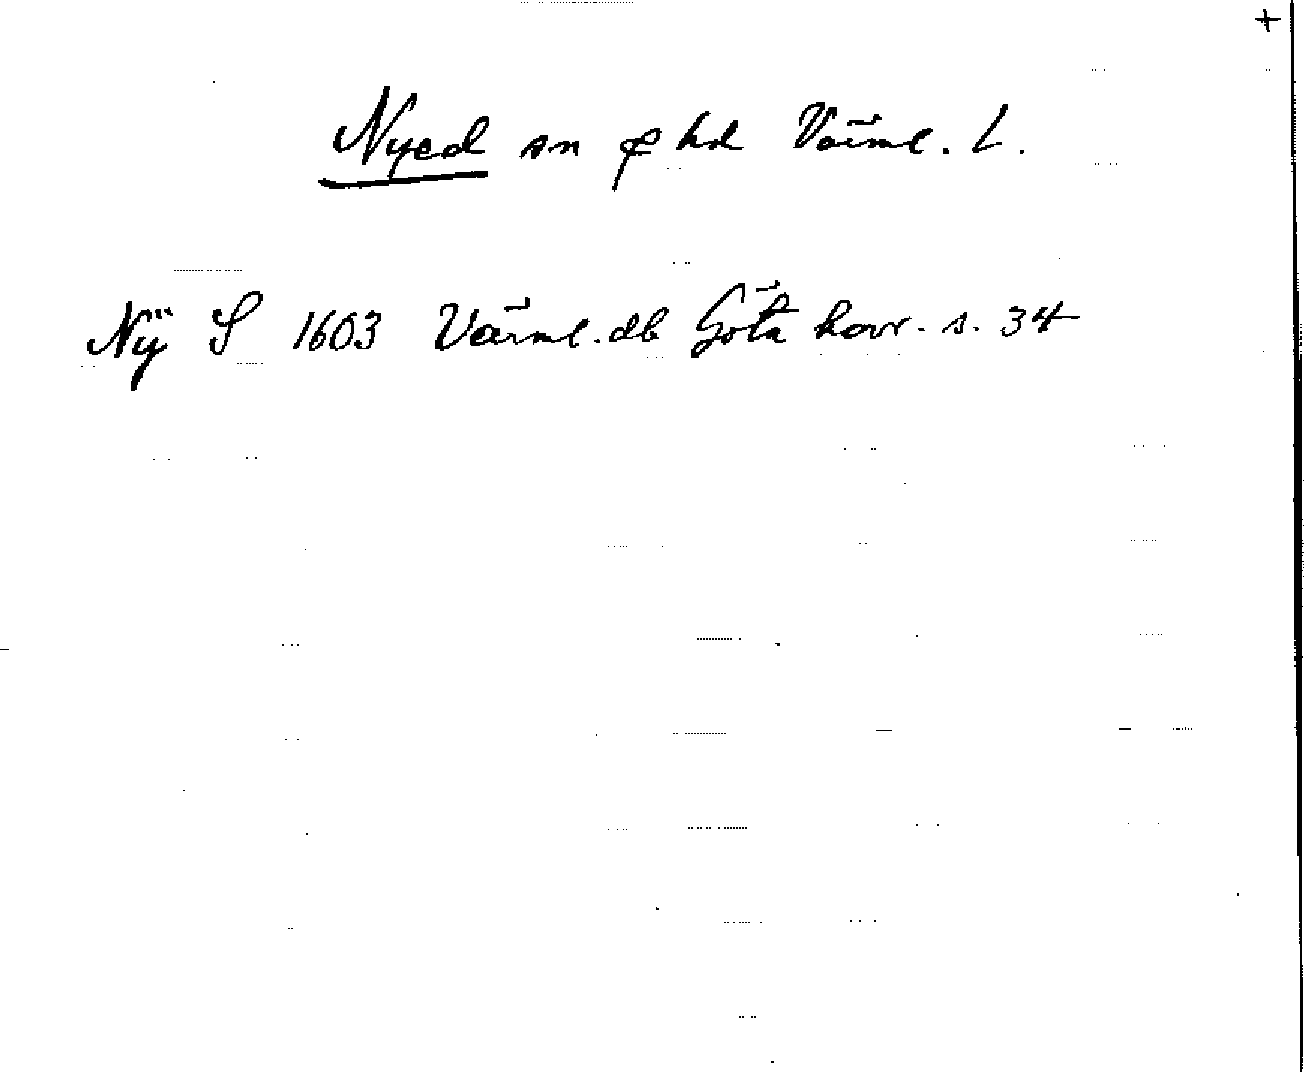 +
Nyed sn φ hd Värml. L.
Nÿ S 1603 Värml. db Göta hovr. s. 34